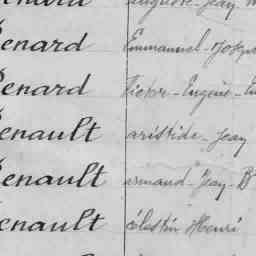 enard Auguste-Jean
enard Emmanuel-Joseph
enard Victor-Eugène-
enault aristide-Jean
enault armand-Jean-B
enault célestin Henri